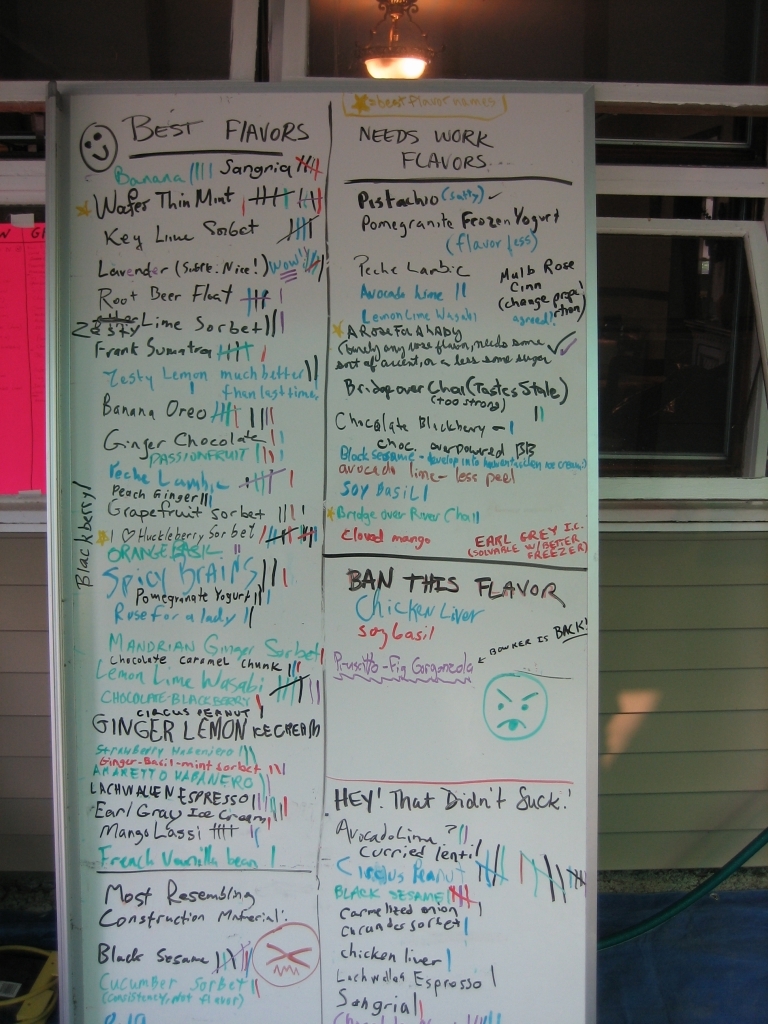 BEST FLAVORS
Banana
Sangria
Wafer Thin Mint
Key Lime Sorbet
Lavender (Subtle. Nice!) WOW!
Root Beer Float
Zesty Lime Sorbet
Frank Sumatra
Zesty Lemon much better
than last time,
Banana Oreo
Ginger Chocolate
PASSIONFRUIT
Peche Lambic
Peach Ginger
Grapefruit Sorbet
I ♡ Huckleberry Sorbet
Blackberry!
ORANGE BASIL
SPICY BRAINS
Pomegranate Yogurt
Rose for a lady
MANDRIAN Ginger Sorbet
Chocolate caramel chunk
Lemon Lime Wasabi
CHOCOLATE-BLACKBERRY
CIRCUS PEANUT
GINGER LEMON ICE CREAM
Strawberry Habenjero
Ginger-Basil-mint sorbet
AMARETTO HABANERO
LACHWALLEN ESPRESSO
Earl Gray Ice Cream
Mango Lassi
French Vanilla bean
Most Resembling
Construction Material:
Black Sesame
Cucumber Sorbet
(consistency, not flavor)
=best flavor names
NEEDS WORK
FLAVORS
Pistachio (salty)
Pomegranite Frozen Yogurt
(flavor less)
Peche Lambic
Avocado Lime
Lemon Lime Wasabi
Mulb Rose
Cinn
(change propo
rtion)
agreed!
A Rose For A Lady
(barely any rose flavor, needs some
sort of accent, or a less some sugar
Bridge over Chai (Tastes Stale)
(too strong)
Chocolate Blackberry -
choc. overpowered BB
Black sesame - develop into
avocado lime - less peel
SOY BASIL
Bridge over River Chai
Cloved mango
EARL GREY I.C.
(SOLVABLE W/BETTER
FREEZER)
BAN THIS FLAVOR
Chicken Liver
soy basil
Prosciutto-Fig Gorgonzola
BOWKER IS BACK!
HEY! That Didn't Suck!
Avocado Lime?
Curried lentil
Circus Peanut
BLACK SESAME
Carmelized onion
Cucumber sorbet
chicken liver
Lachwallen Espresso
Sangria